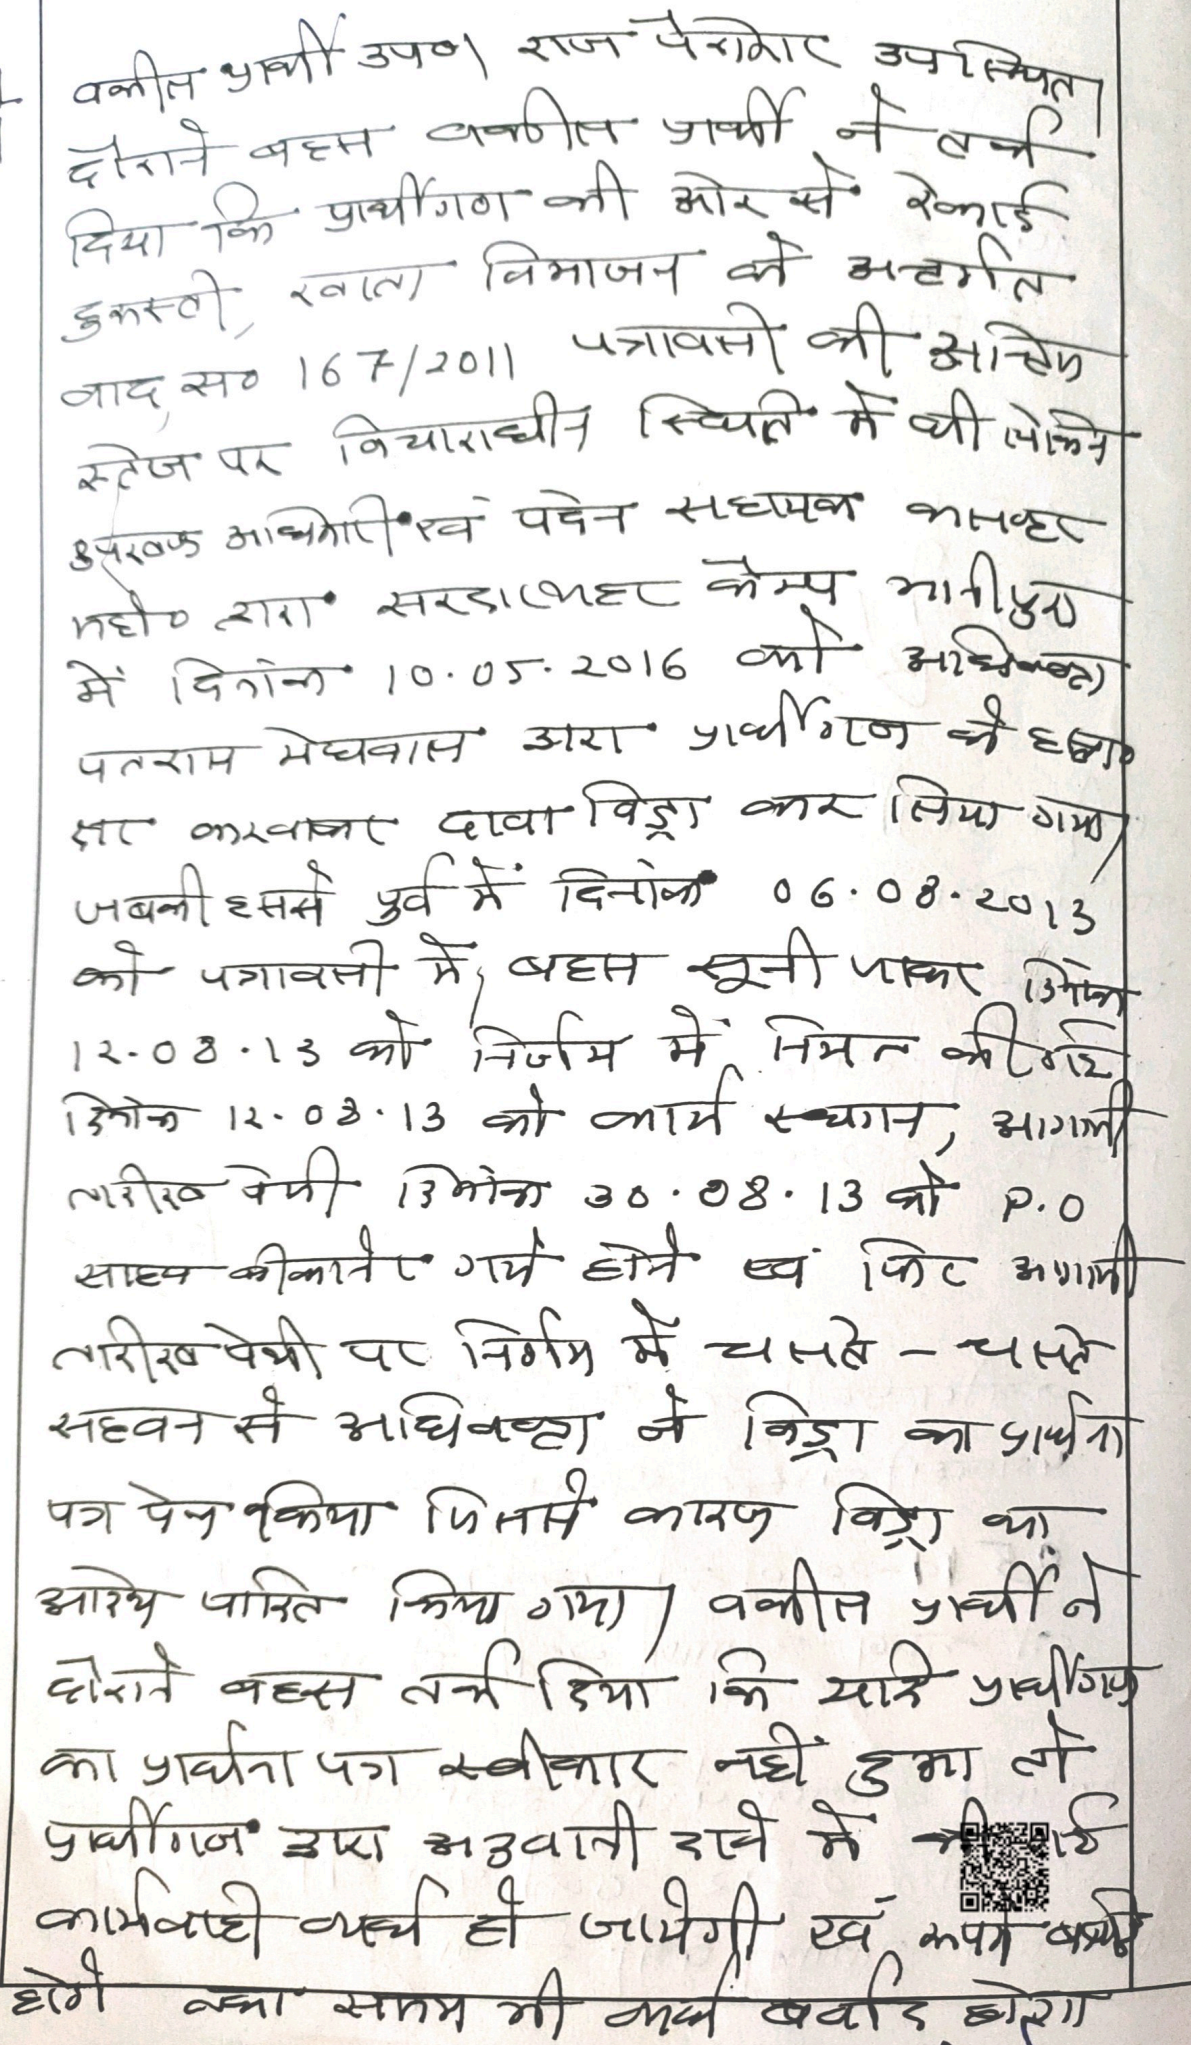 वकील प्रार्थी उप०। राज पैरोकार उपस्थित।
दौराने बहस वकील प्रार्थी ने तर्क
दिया कि प्रार्थीगण की ओर से रेकार्ड
दुरुस्ती, खाता विभाजन के अन्तर्गत
वाद स० 167/2011 पत्रावली की अन्तिम
स्टेज पर विचाराधीन स्थिति में थी लेकिन
उपखण्ड अधिकारी एवं पदेन सहायक कलक्टर
महो० द्वारा सरदारशहर कैम्प भानीपुरा
में दिनांक 10.05.2016 को अधिवक्ता
पतराम मेघवाल द्वारा प्रार्थीगण के हस्ता०
क्षर करवाकर दावा विड्रा कर लिया गया।
जबकी इससे पुर्व में दिनांक 06.08.2013
को पत्रावली में, बहस सूनी जाकर दिनांक
12.08.13 को निर्णय में नियत की गई
दिनांक 12.08.13 को कार्य स्थगन, आगामी
तारीख पेशी दिनांक 30.08.13 को P.O
साहब बीकानेर गये होने एवं फिर आगामी
तारीख पेशी पर निर्णय में चलते - चलते
सहवन से अधिवक्ता ने विड्रा का प्रार्थना
पत्र पेश किया जिसके कारण विड्रा का
आदेश पारित किया गया। वकील प्रार्थी ने
दौराने बहस तर्क दिया कि यदि प्रार्थीगण
का प्रार्थना पत्र स्वीकार नहीं हुआ तो
प्रार्थीगण द्वारा अनुवानी दावे में की गई
कार्यवाही व्यर्थ हो जायेगी एवं
होगे तथा समय भी व्यर्थ बर्बाद होगा